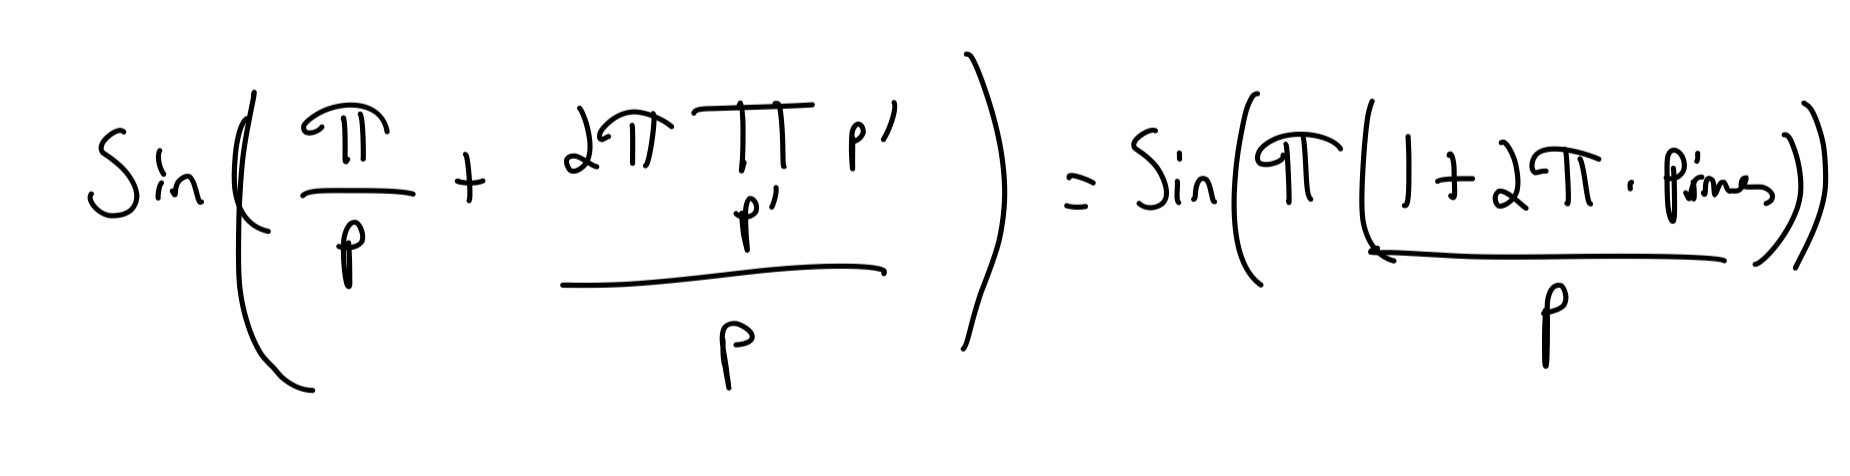 Sin(π/p + 2π ∏_{p'} p' / p) = Sin(π(1+2π · primes)/p)